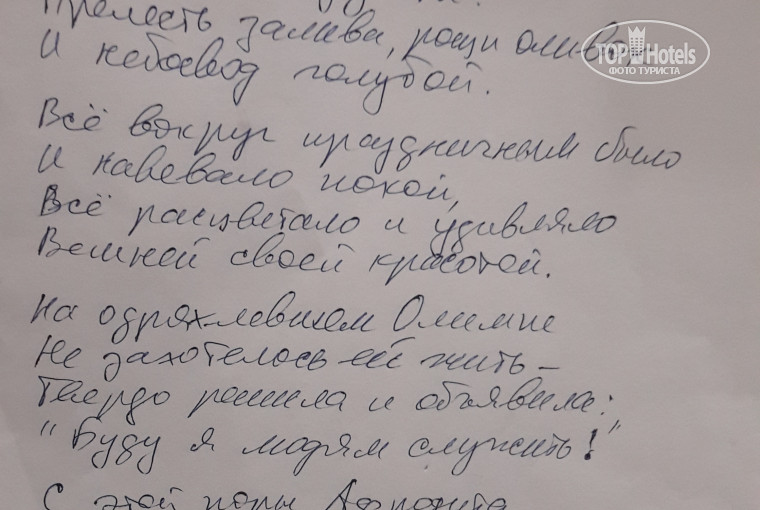 Прелесть залива, рощи олив
И небосвод голубой.
Всё вокруг праздничным было
И навевало покой,
Всё расцветало и удивляло
Вешней своей красотой.
На одряхлевшем Олимпе
Не захотелось ей жить –
Твердо решила и объявила:
"Буду я людям служить!"
С этой поры Афродита
TOP Hotels
ФОТО ТУРИСТА